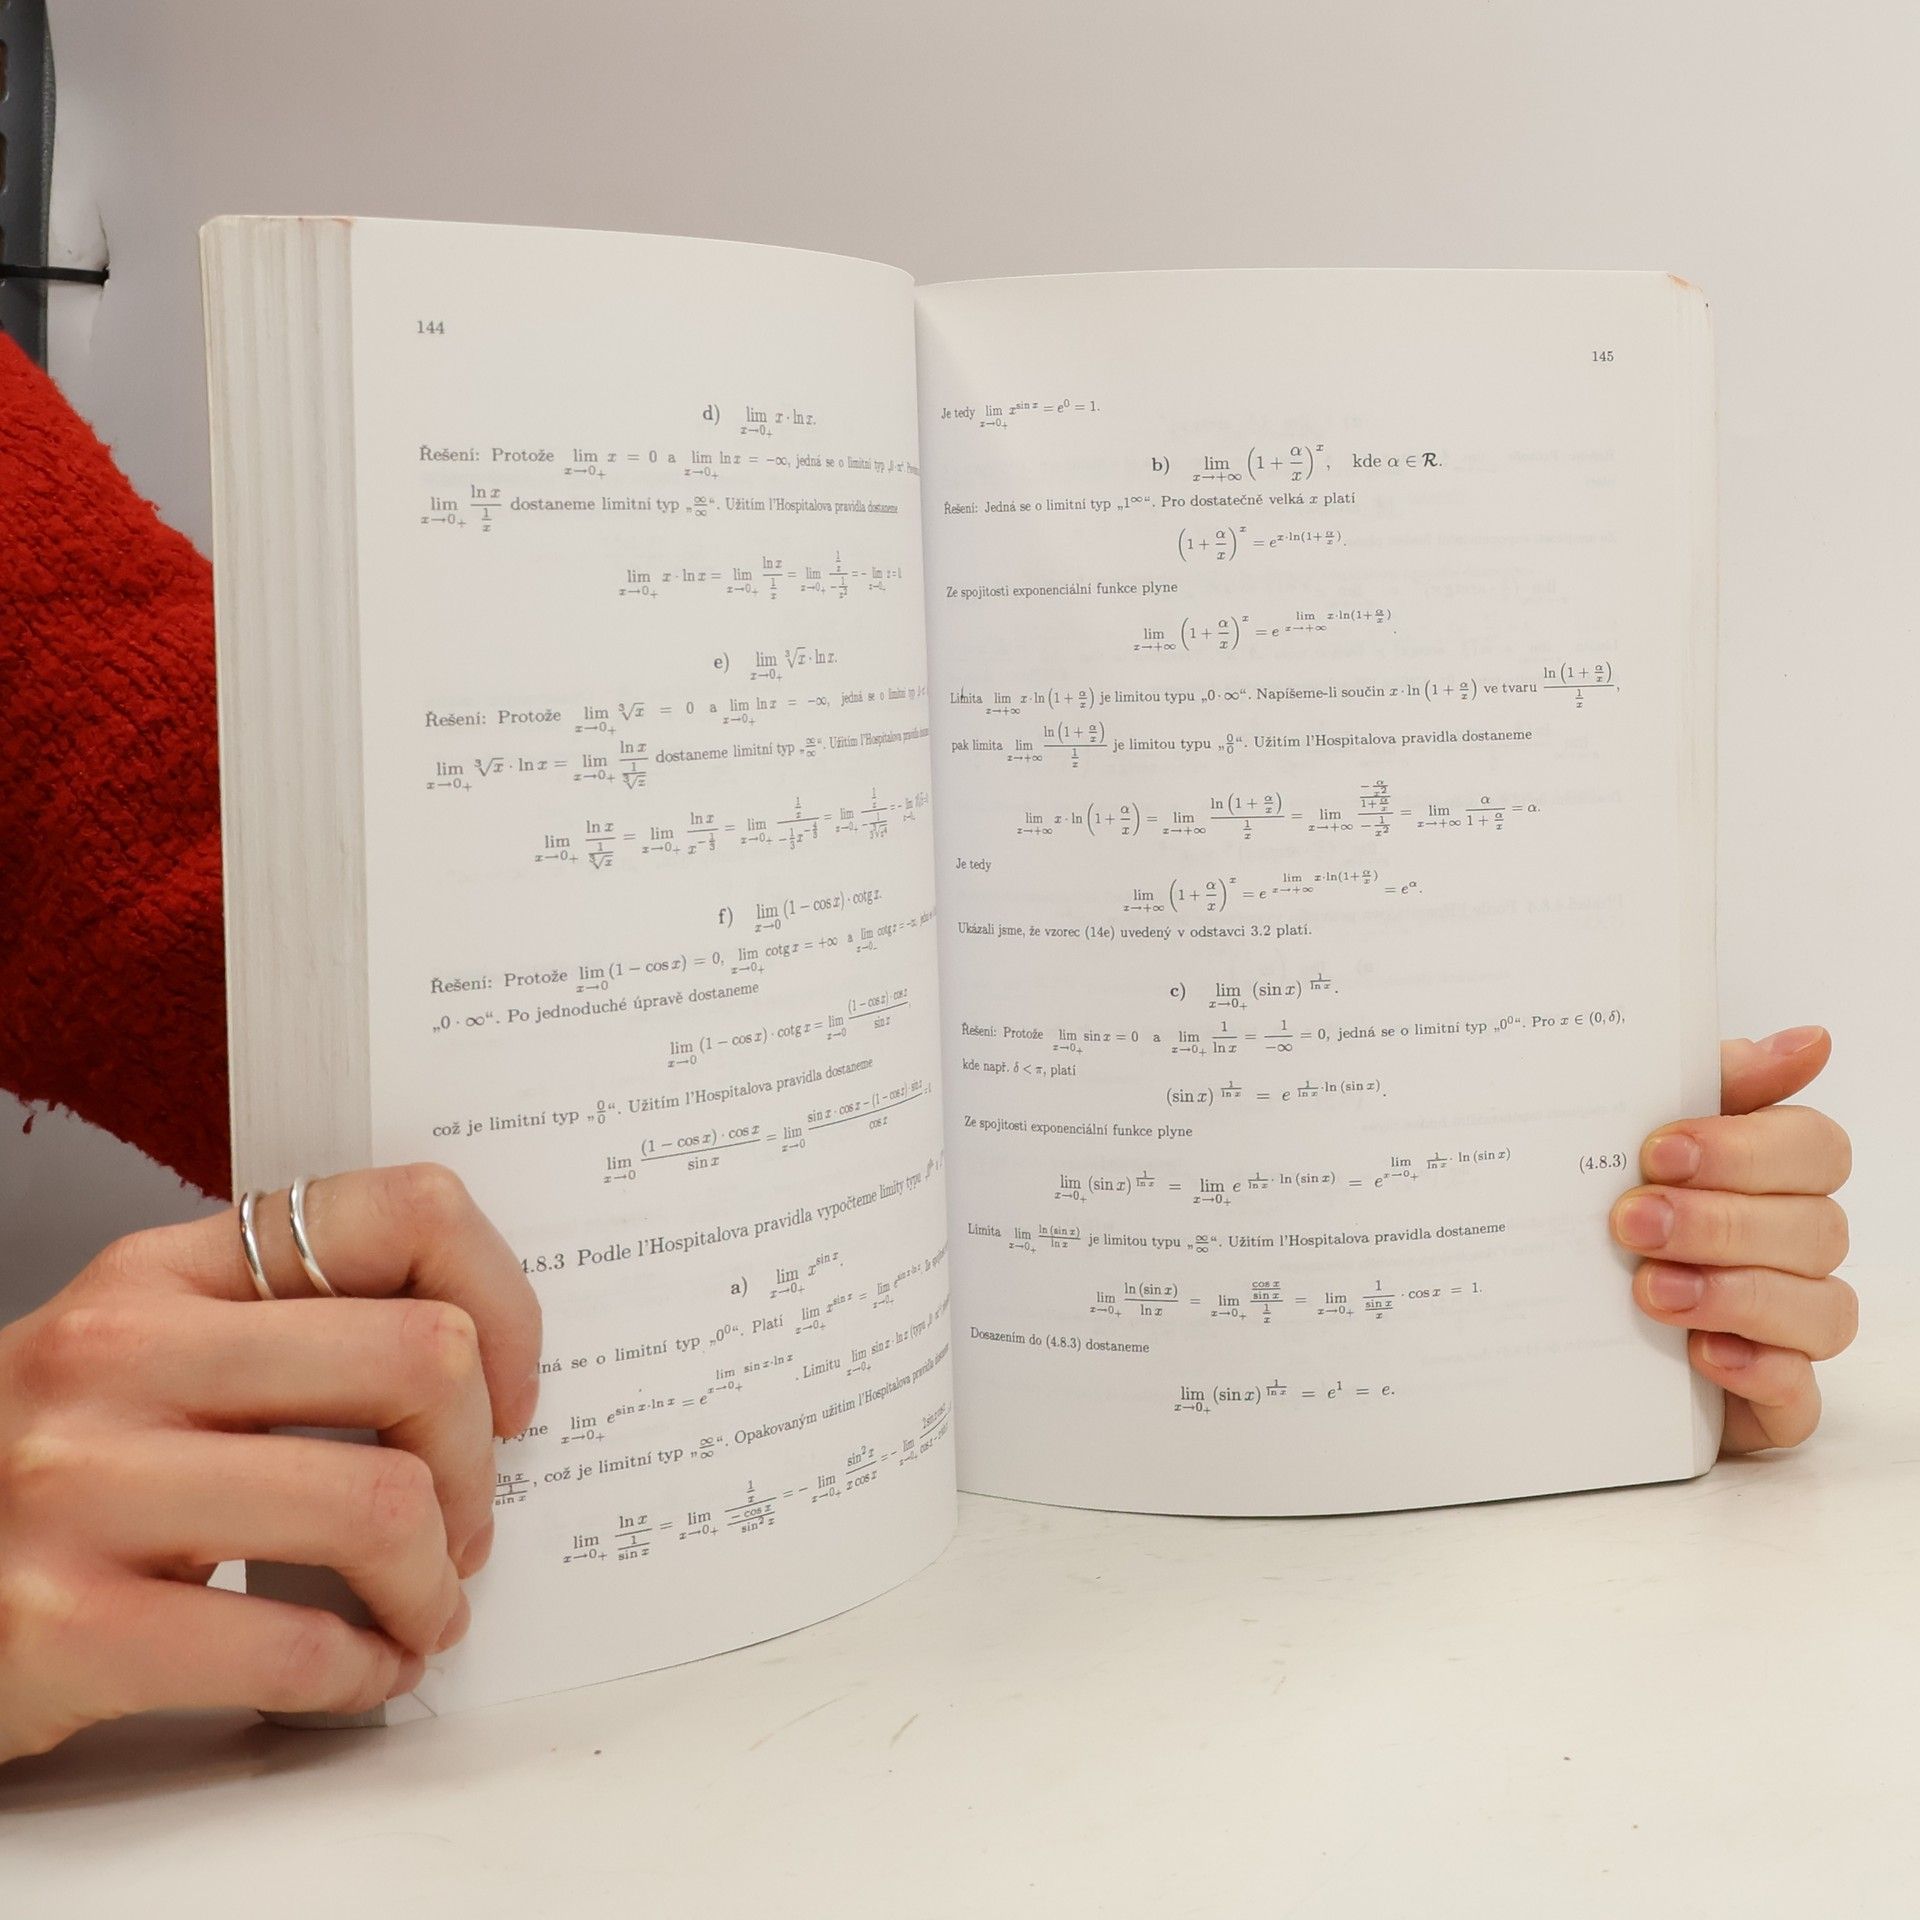 144
d) lim_{x→0+} x · ln x.
Řešení: Protože lim_{x→0+} x = 0 a lim_{x→0+} ln x = −∞, jedná se o limitní typ „0·∞“.
lim_{x→0+} \frac{ln x}{\frac{1}{x}} dostaneme limitní typ „\frac{∞}{∞}“. Užitím l'Hospitalova pravidla dostaneme
lim_{x→0+} x · ln x = lim_{x→0+} \frac{ln x}{\frac{1}{x}} = lim_{x→0+} \frac{\frac{1}{x}}{−\frac{1}{x^2}} = − lim_{x→0+} x =
e) lim_{x→0+} \sqrt[3]{x} · ln x.
Řešení: Protože lim_{x→0+} \sqrt[3]{x} = 0 a lim_{x→0+} ln x = −∞, jedná se o limitní typ
lim_{x→0+} \sqrt[3]{x} · ln x = lim_{x→0+} \frac{ln x}{\frac{1}{\sqrt[3]{x}}} dostaneme limitní typ „\frac{∞}{∞}“. Užitím l'Hospitalova pravidla
lim_{x→0+} \frac{ln x}{\frac{1}{\sqrt[3]{x}}} = lim_{x→0+} \frac{ln x}{x^{−\frac{1}{3}}} = lim_{x→0+} \frac{\frac{1}{x}}{−\frac{1}{3}x^{−\frac{4}{3}}} = lim_{x→0+}
f) lim_{x→0} (1 − cos x) · cotg x.
Řešení: Protože lim_{x→0} (1 − cos x) = 0, lim_{x→0+} cotg x = +∞ a lim_{x→0−} cotg x = −∞,
„0 · ∞“. Po jednoduché úpravě dostaneme
lim_{x→0} (1 − cos x) · cotg x = lim_{x→0} \frac{(1 − cos x) · cos x}{sin x},
což je limitní typ „\frac{0}{0}“. Užitím l'Hospitalova pravidla dostaneme
lim_{x→0} \frac{(1 − cos x) · cos x}{sin x} = lim_{x→0} \frac{sin x · cos x − (1 − cos x) · sin x}{cos x}
4.8.3 Podle l'Hospitalova pravidla vypočteme limity typu
a) lim_{x→0+} x^{sin x}.
se o limitní typ „0^0“. Platí lim_{x→0+} x^{sin x} = lim_{x→0+} e^{sin x·ln x}.
plyne lim_{x→0+} e^{sin x·ln x} = e^{lim_{x→0+} sin x·ln x}. Limitu lim_{x→0+} sin x · ln x (typu
\frac{ln x}{\frac{1}{sin x}}, což je limitní typ „\frac{∞}{∞}“. Opakovaným užitím l'Hospitalova pravidla
lim_{x→0+} \frac{ln x}{\frac{1}{sin x}} = lim_{x→0+} \frac{\frac{1}{x}}{\frac{−cos x}{sin^2 x}} = − lim_{x→0+} \frac{sin^2 x}{x cos x} = − lim_{x→0+}
145
Je tedy lim_{x→0+} x^{sin x} = e^0 = 1.
b) lim_{x→+∞} (1 + \frac{α}{x})^x, kde α ∈ R.
Řešení: Jedná se o limitní typ „1^∞“. Pro dostatečně velká x platí
(1 + \frac{α}{x})^x = e^{x·ln(1+\frac{α}{x})}.
Ze spojitosti exponenciální funkce plyne
lim_{x→+∞} (1 + \frac{α}{x})^x = e^{lim_{x→+∞} x·ln(1+\frac{α}{x})}.
Limita lim_{x→+∞} x · ln (1 + \frac{α}{x}) je limitou typu „0 · ∞“. Napíšeme-li součin x · ln (1 + \frac{α}{x}) ve tvaru \frac{ln (1 + \frac{α}{x})}{\frac{1}{x}},
pak limita lim_{x→+∞} \frac{ln (1 + \frac{α}{x})}{\frac{1}{x}} je limitou typu „\frac{0}{0}“. Užitím l'Hospitalova pravidla dostaneme
lim_{x→+∞} x · ln (1 + \frac{α}{x}) = lim_{x→+∞} \frac{ln (1 + \frac{α}{x})}{\frac{1}{x}} = lim_{x→+∞} \frac{\frac{−\frac{α}{x^2}}{1+\frac{α}{x}}}{−\frac{1}{x^2}} = lim_{x→+∞} \frac{α}{1 + \frac{α}{x}} = α.
Je tedy
lim_{x→+∞} (1 + \frac{α}{x})^x = e^{lim_{x→+∞} x·ln(1+\frac{α}{x})} = e^α.
Ukázali jsme, že vzorec (14e) uvedený v odstavci 3.2 platí.
c) lim_{x→0+} (sin x)^{\frac{1}{ln x}}.
Řešení: Protože lim_{x→0+} sin x = 0 a lim_{x→0+} \frac{1}{ln x} = \frac{1}{−∞} = 0, jedná se o limitní typ „0^0“. Pro x ∈ (0, δ),
kde např. δ < π, platí
(sin x)^{\frac{1}{ln x}} = e^{\frac{1}{ln x}·ln (sin x)}.
Ze spojitosti exponenciální funkce plyne
lim_{x→0+} (sin x)^{\frac{1}{ln x}} = lim_{x→0+} e^{\frac{1}{ln x}· ln (sin x)} = e^{lim_{x→0+} \frac{1}{ln x}· ln (sin x)} (4.8.3)
Limita lim_{x→0+} \frac{ln (sin x)}{ln x} je limitou typu „\frac{∞}{∞}“. Užitím l'Hospitalova pravidla dostaneme
lim_{x→0+} \frac{ln (sin x)}{ln x} = lim_{x→0+} \frac{\frac{cos x}{sin x}}{\frac{1}{x}} = lim_{x→0+} \frac{1}{\frac{sin x}{x}} · cos x = 1.
Dosazením do (4.8.3) dostaneme
lim_{x→0+} (sin x)^{\frac{1}{ln x}} = e^1 = e.